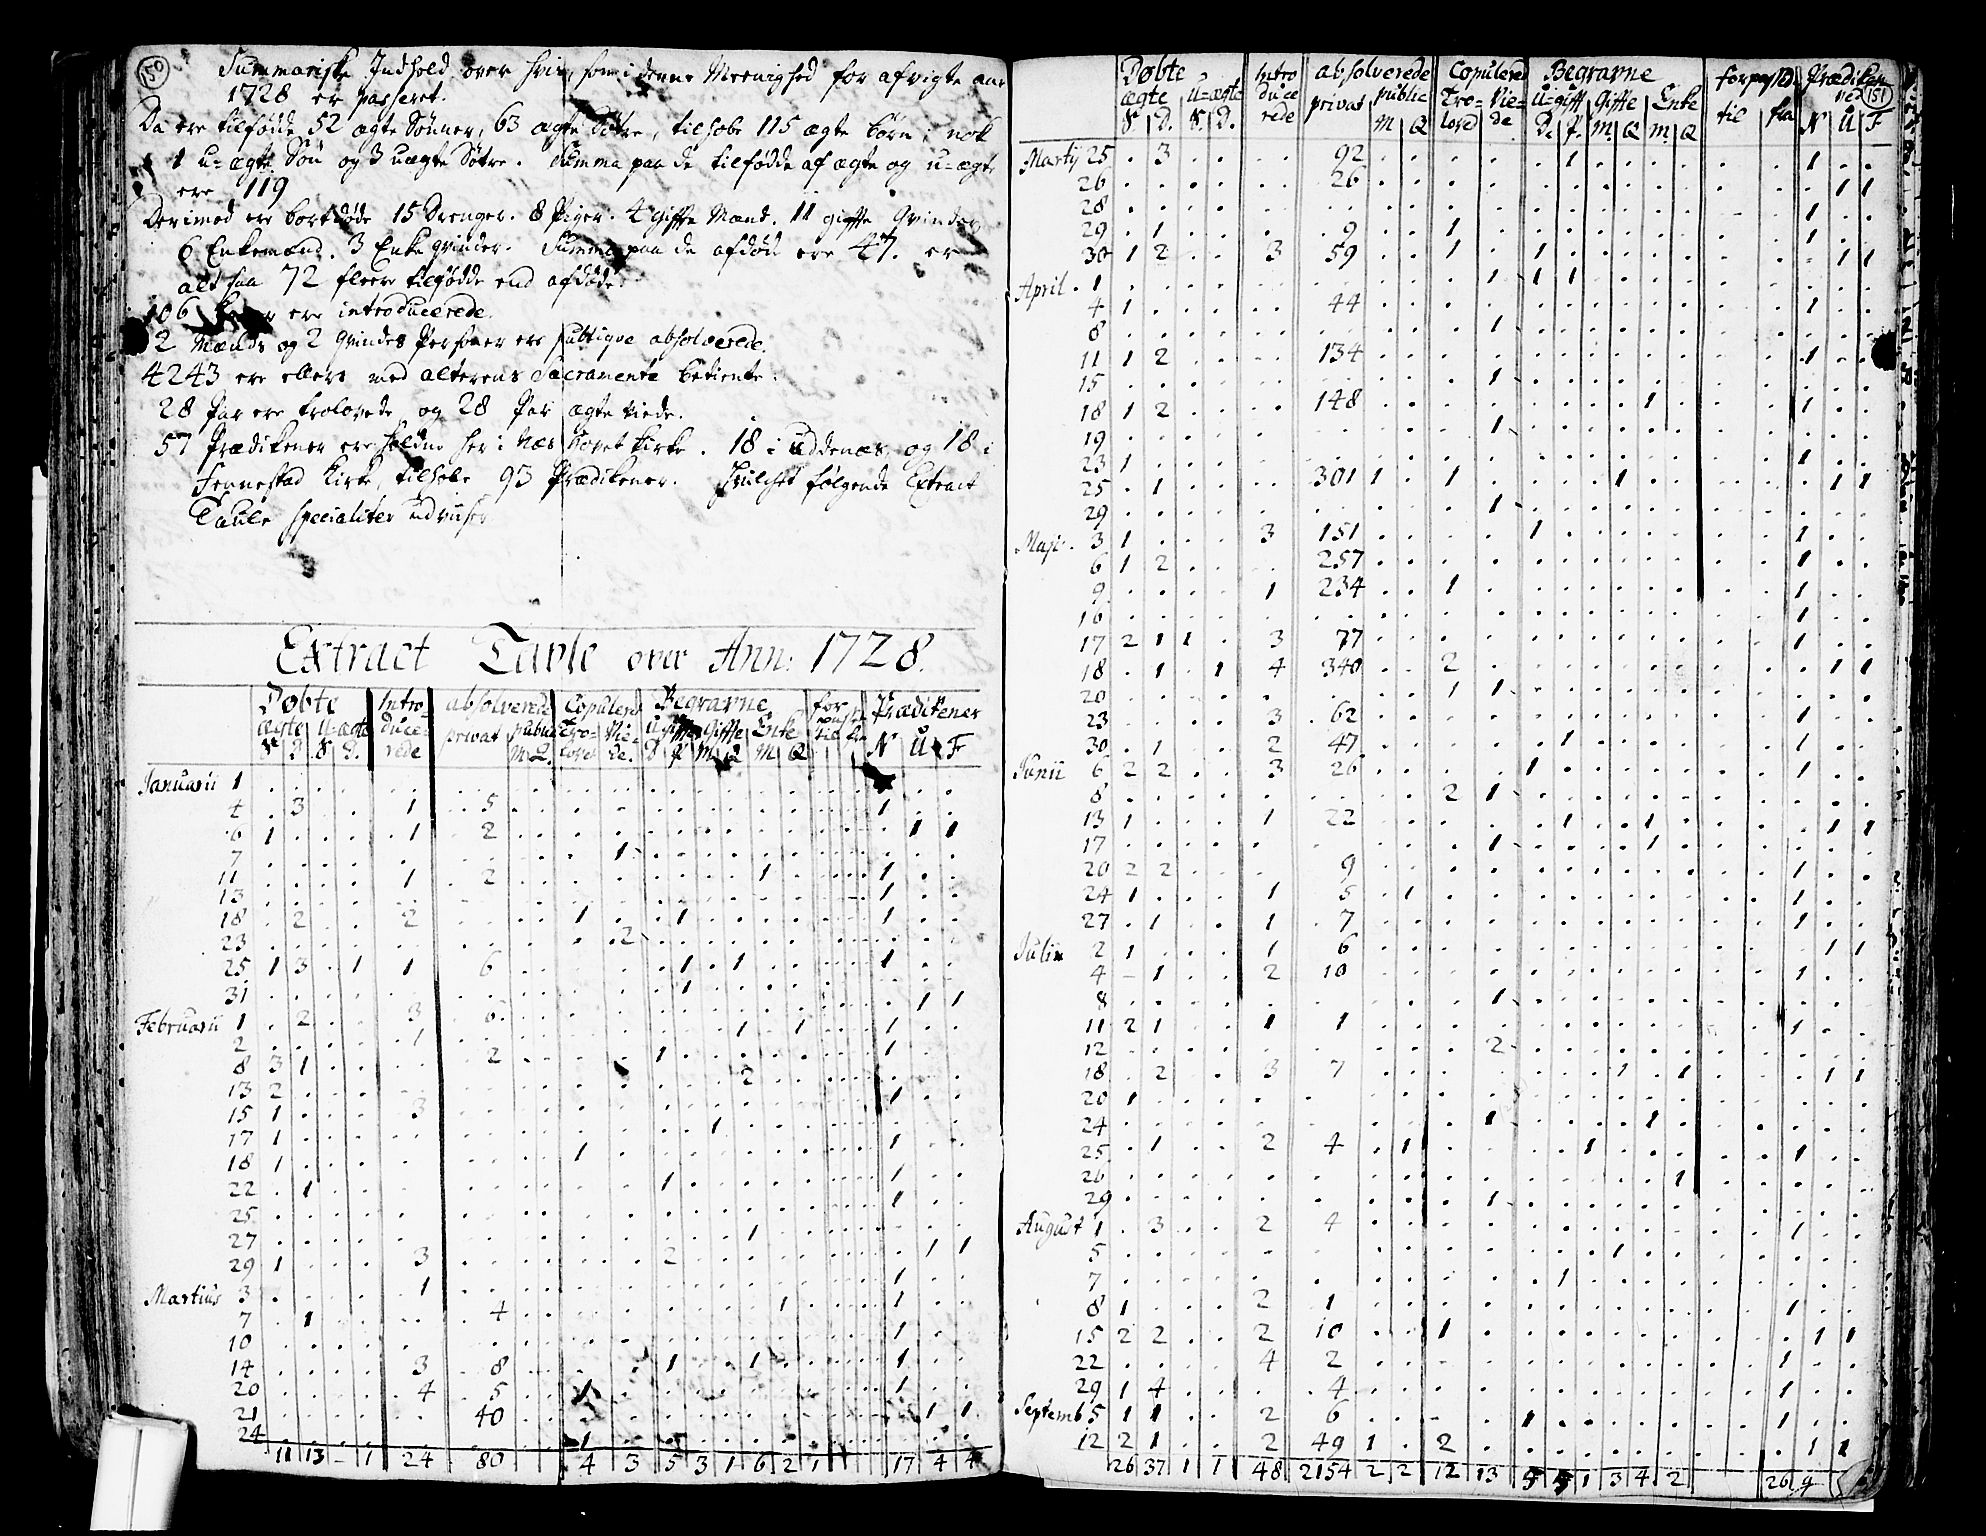 150
Summariske Indhold over hvis, som i denne Meenighed for afvigte aar
1728 er passeret.
Da ere tilfødde 52 ægte Sønner, 63 ægte Døtre, tilsobe 115 ægte børn; nok
1 u-ægte Søn og 3 uægte Døtre. Summa paa de tilfødde af ægte og u-ægte
ere 119
Derimod ere bortdøde 15 Drenger. 8 Piger. 4 giffte Mænd. 11 giffte Qvinder,
6 Enkemænd. 3 Enkeqvinder. Summa paa de afdøde ere 47. er
altsaa 72 fleere tilfødde end afdøde.
106 ere introducerede.
2 Mænds og 2 Qvindes Personer ere publiqve absolverede.
4243 ere ellers med alterens Sacramente betiente.
28 Par ere trolovede og 28 Par ægte viede.
57 Prædikener ere holdne her i Næs hovet kirke. 18 i Uddenæs, og 18 i
Fennestad Kirke, tilsobe 93 Prædikener. Hvilchet følgende Extract
Taule specialiter udviiser.
Extract Taule over Ann: 1728.
Døbte Intro- absolverede Copulered Begravne for Prædikener
ægte u-ægte duce- privat Tro- Vie- u-giffte Giffte Enke til fra
S D S D. rede M Q. lovet de. D P M Q M Q N U F
Januarii 1
4 3 1 5 1
6 1 1 2 1 1
7 1
11 1 2 1 1
13
18 2 2 1 1 1
23 2
25 1 3 1 1 6 1 1 1
31 1
Februarii 1 2 3 6 1 1
2 1 1 1 1
8 3 1 2 1 1
13 2 2
15 1 3 1
17 1 1
18 1 1 1
22 1 1 1
25 1
27 1
29 1 3 2 1 1
Martius 3 1 1
7 1 4 1 1
10 1
14 3 8 1 1 1
20 4 5 1 1
21 40 1 1
24 1
11 13 - 1 24 80 4 3 5 3 1 6 2 1 17 4 4
151
Døbte Intro absolverede Copulered Begravne Prædiken
ægte u-ægte duce privat public Tro- Vie- u-giff Giffte Enke til fra
S. D. S. D. rede M Q loved de D. P. M. Q M. Q N U F
Martij 25 3 92 1 1
26 26 1 1
28 1
29 1 9 1 1
30 1 2 3 59 1 1 1 1
April 1 1 1 1
4 1 44
8 1
11 1 2 134 1
15 1
18 1 2 148 1 1
19 1
23 1 1
25 1 301 1 1 1 1 1
29 1
Maji 3 1 3 151 1 1
6 1 2 257 1
9 1 234 1 1
16 1
17 2 1 1 3 77 1
18 1 1 4 340 2 1 1
20 1 1
23 3 62 1
30 1 2 47 1 1
Junii 6 2 2 3 26 1 1
8 2 1
13 1 1 22 1 1 1 1
17 1 1
20 2 2 9 1
24 1 1 5 1 1
27 1 1 7 1
Julii 2 1 1 6 1 1
4 - 1 2 10 1
8 1
11 2 1 1 1 1
12 2
18 2 3 7 1 1 1 1
20 1
24 1 1
25 1 2 4 1 1 1
26 1
29 1
August 1 3 2 4 1
5 1
7 1
8 1 2 1 1
15 2 2 2 10 1 1 1
22 4 2 1
29 1 4 4 1
Septemb 5 1 1 2 6 1 1
12 2 1 2 49 1 2 1 1
26 37 1 1 48 2154 2 2 12 13 5 5 1 3 4 2 26 9